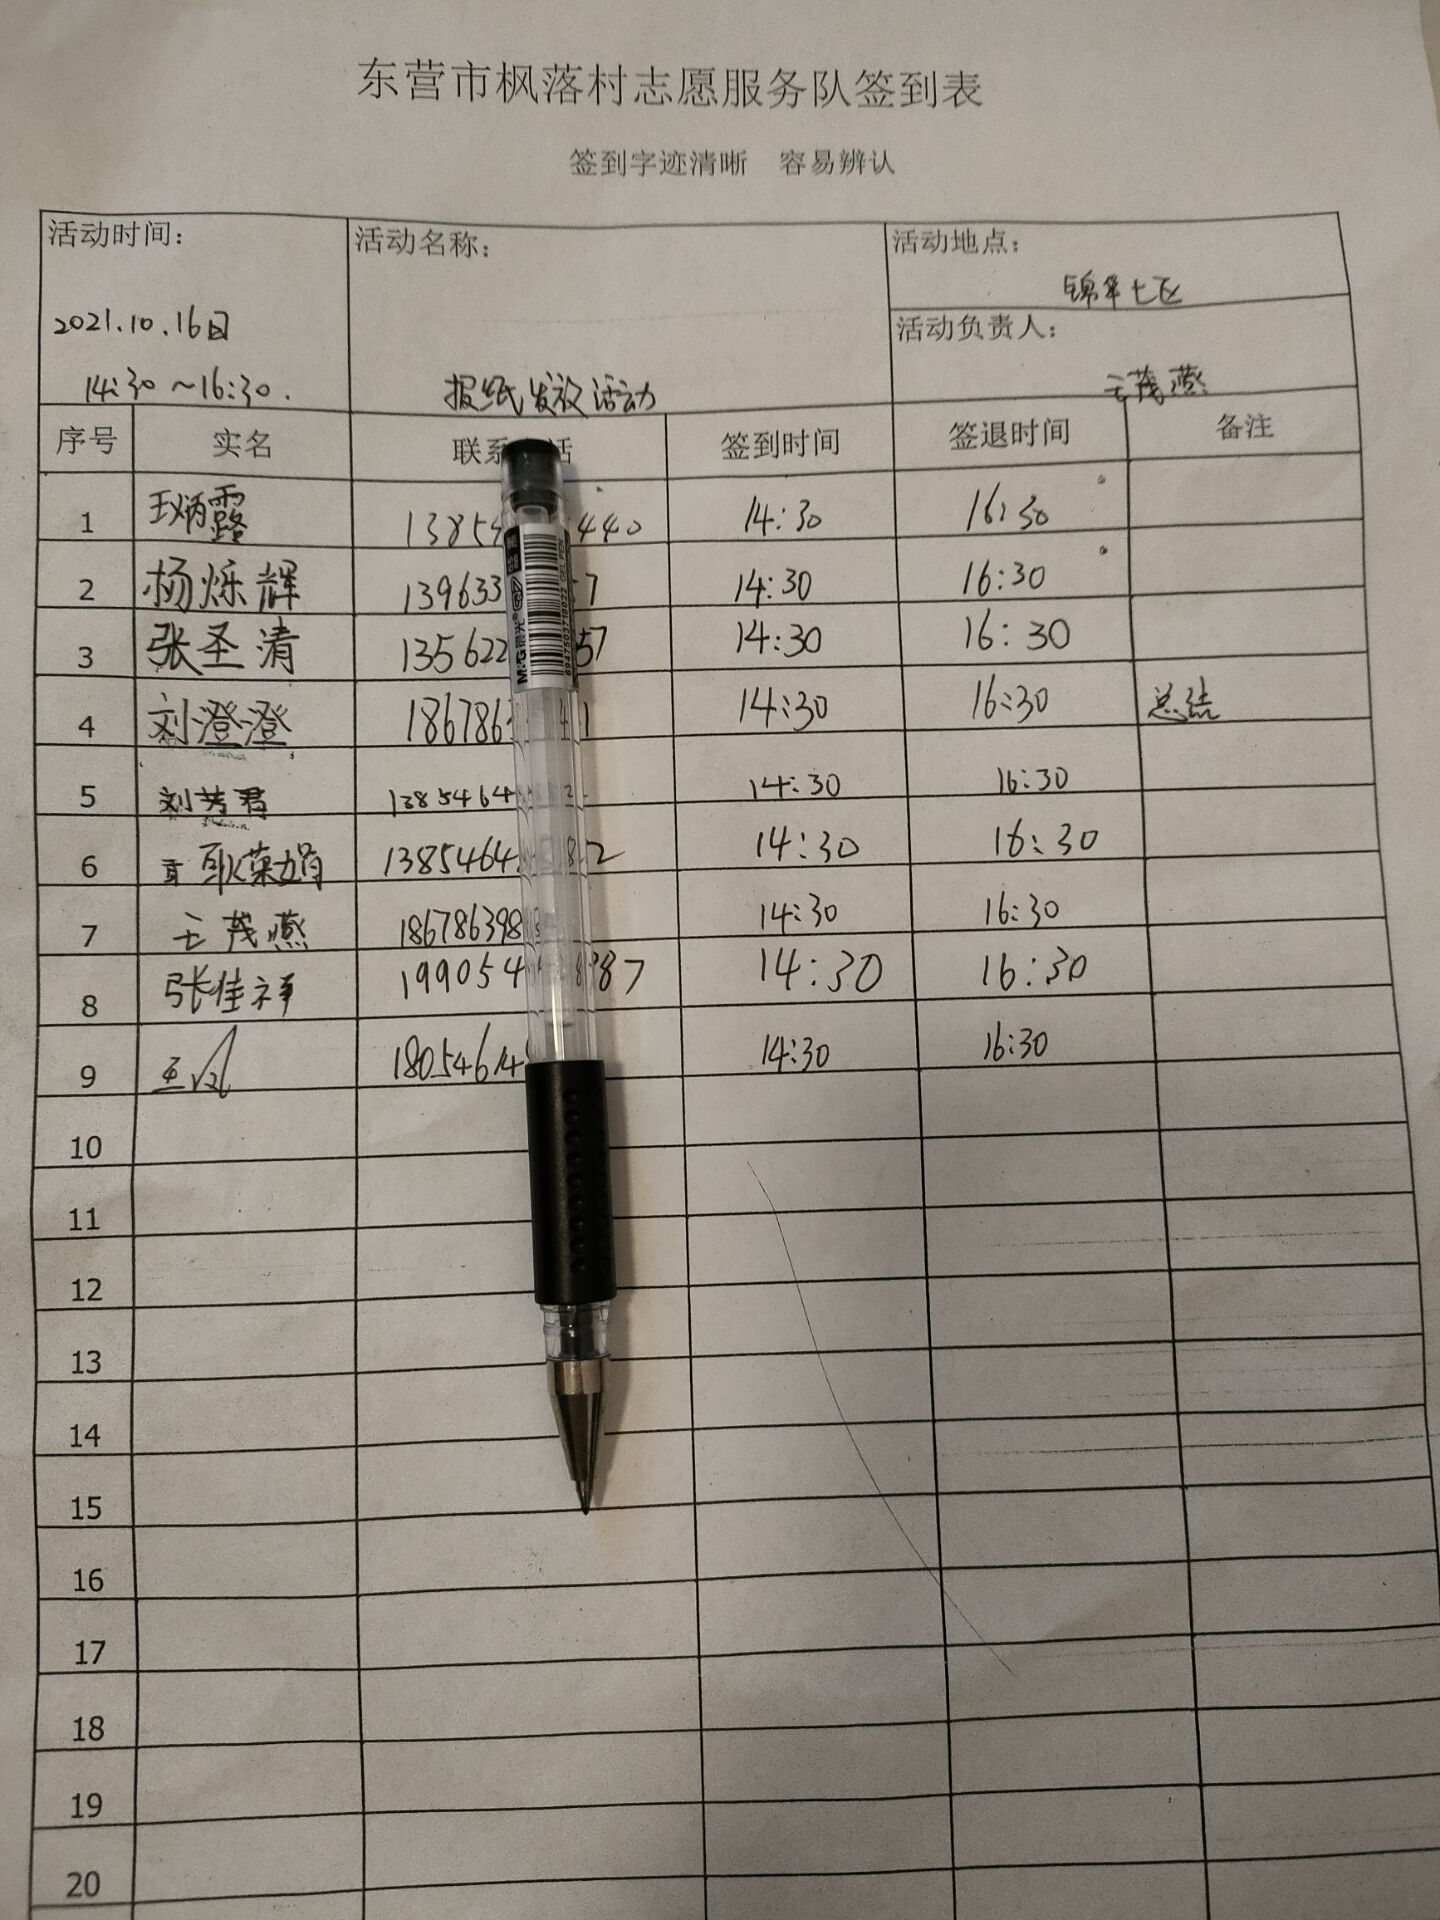 东营市枫落村志愿服务队签到表
签到字迹清晰 容易辨认
活动时间： 活动名称： 活动地点：
锦华七区
2021.10.16日 活动负责人：
14:30～16:30. 报纸发放活动 王茂燕
序号 实名 联系 话 签到时间 签退时间 备注
1 14:30 16:30
2 杨烁辉 139633 7 14:30 16:30
3 张圣清 135622 57 14:30 16:30
4 刘澄澄 186786 14:30 16:30 总结
5 刘芳君 1385464 14:30 16:30
6 1385464 14:30 16:30
7 王茂燕 186786398 14:30 16:30
8 张佳祥 199054 87 14:30 16:30
9 18054614 14:30 16:30
10
11
12
13
14
15
16
17
18
19
20
M&G晨光®
GEL PEN